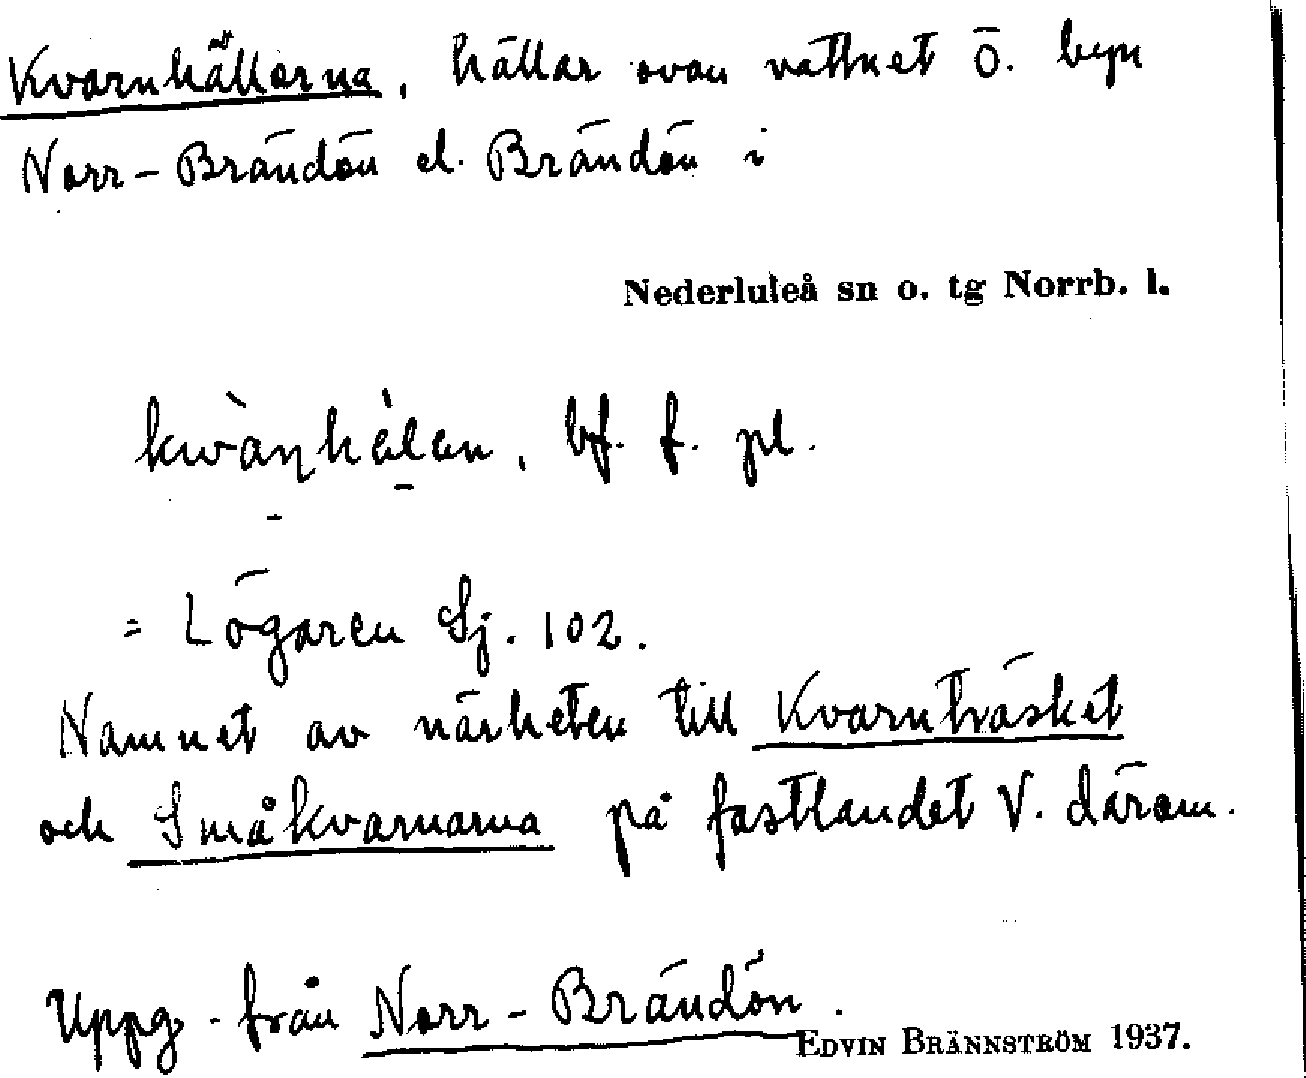 Kvarnhällarna, hällar ovan vattnet Ö. byn
Norr-Brändön el. Brändön i
Nederluleå sn o. tg Norrb. l.
kwàṇhèlen, bf. f. pl.
= Lögaren Sj. 102.
Namnet av närheten till Kvarnträsket
och Småkvarnarna på fastlandet V. därom.
Uppg. från Norr-Brändön.
EDVIN BRÄNNSTRÖM 1937.